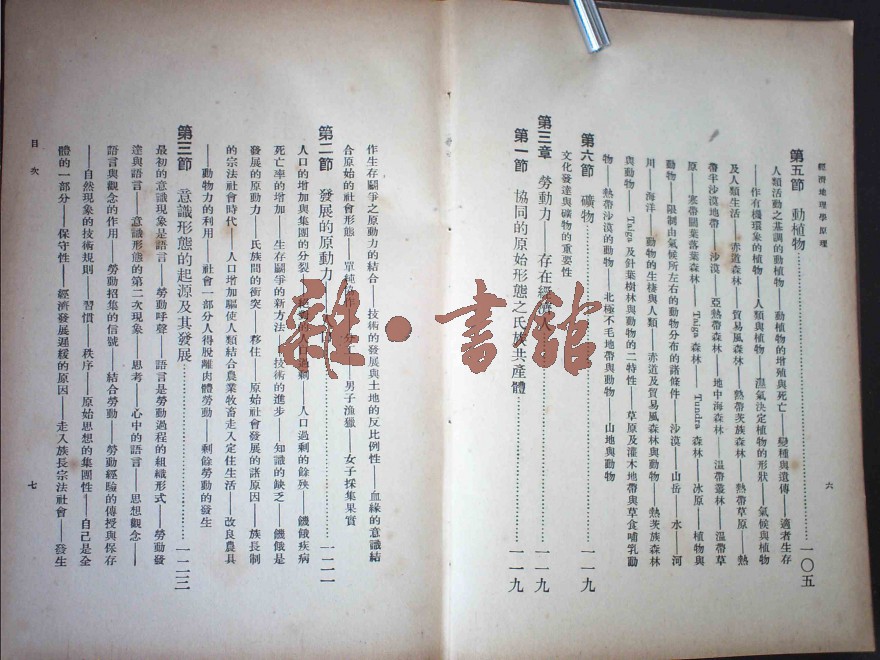 經濟地理學原理
六
第五節 動植物……一〇五
人類活動之基調的動植物——動植物的增殖與死亡——變種與遺傳——適者生存
——作有機環象的植物——人類與植物——溫氣決定植物的形狀——氣候與植物
及人類生活——赤道森林——貿易風森林——熱帶茨族森林——熱帶草原——熱
帶半沙漠地帶——沙漠——亞熱帶森林——地中海森林——溫帶叢林——溫帶草
原——寒帶闊葉落葉森林——Taiga 森林——Tundra 森林——冰原——植物與
動物——限制由氣候所左右的動物分布的諸條件——沙漠——山岳——水——河
川——海洋——動物的生棲與人類——赤道及貿易風森林與動物——熱茨族森林
與動物——Taiga 及針葉樹林與動物的二特性——草原及灌木地帶與草食哺乳動
物——熱帶沙漠的動物——北極不毛地帶與動物——山地與動物
第六節 礦物……一一九
文化發達與礦物的重要性
第三章 勞動力——存在經濟人……一一九
第一節 協同的原始形態之氏族共產體……一一九
作生存鬪爭之原動力的結合——技術的發展與土地的反比例性——血緣的意識結
合原始的社會形態——單純——男子漁獵——女子採集果實
第二節 發展的原動力……一二一
人口的增加與集團的分裂——人口過剩——人口過剩的餘殃——饑餓疾病
死亡率的增加——生存鬪爭的新方法——技術的進步——知識的缺乏——饑餓是
發展的原動力——氏族間的衝突——夥住——原始社會發展的諸原因——族長制
的宗法社會時代——人口增加驅使人類結合農業牧畜走入定住生活——改良農具
——動物力的利用——社會一部分人得脫離肉體勞動——剩餘勞動的發生
第三節 意識形態的起源及其發展……一二三
最初的意識現象是語言——勞動呼聲——語言是勞動過程的組織形式——勞動發
達與語言——意識形態的第二次現象——思考——心中的語言——思想觀念——
語言與觀念的作用——勞動招集的信號——結合勞動——勞動經驗的傳授與保存
——自然現象的技術規則——習慣——秩序——原始思想的集團性——自己是全
體的一部分——保守性——經濟發展遲緩的原因——走入族長宗法社會——發生
目次
七
雜·書館